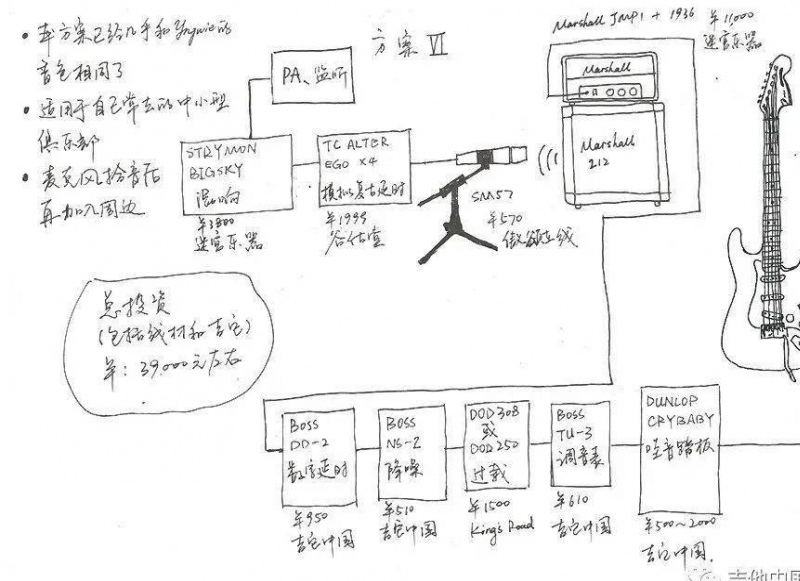 • 本方案已经几乎和Yngwie的
音色相同了
• 适用于自己常去的中小型
俱乐部
• 麦克风拾音后
再加入周边
方案 VI
PA、监听
STRYMON
BIGSKY
混响
¥3800
迷宫乐器
TC ALTER
EGO X4
模拟复古延时
¥1999
SM57
¥570
Marshall JMP1 + 1936
¥11,000
迷宫乐器
Marshall
Marshall
212
总投资
(包括线材和吉它)
¥: 39,000元左右
BOSS
DD-2
数字延时
¥950
吉它中国
BOSS
NS-2
降噪
¥510
吉它中国
DOD308
或
DOD250
过载
¥1500
King's Road
BOSS
TU-3
调音表
¥610
吉它中国
DUNLOP
CRYBABY
哇音踏板
¥500~2000
吉它中国